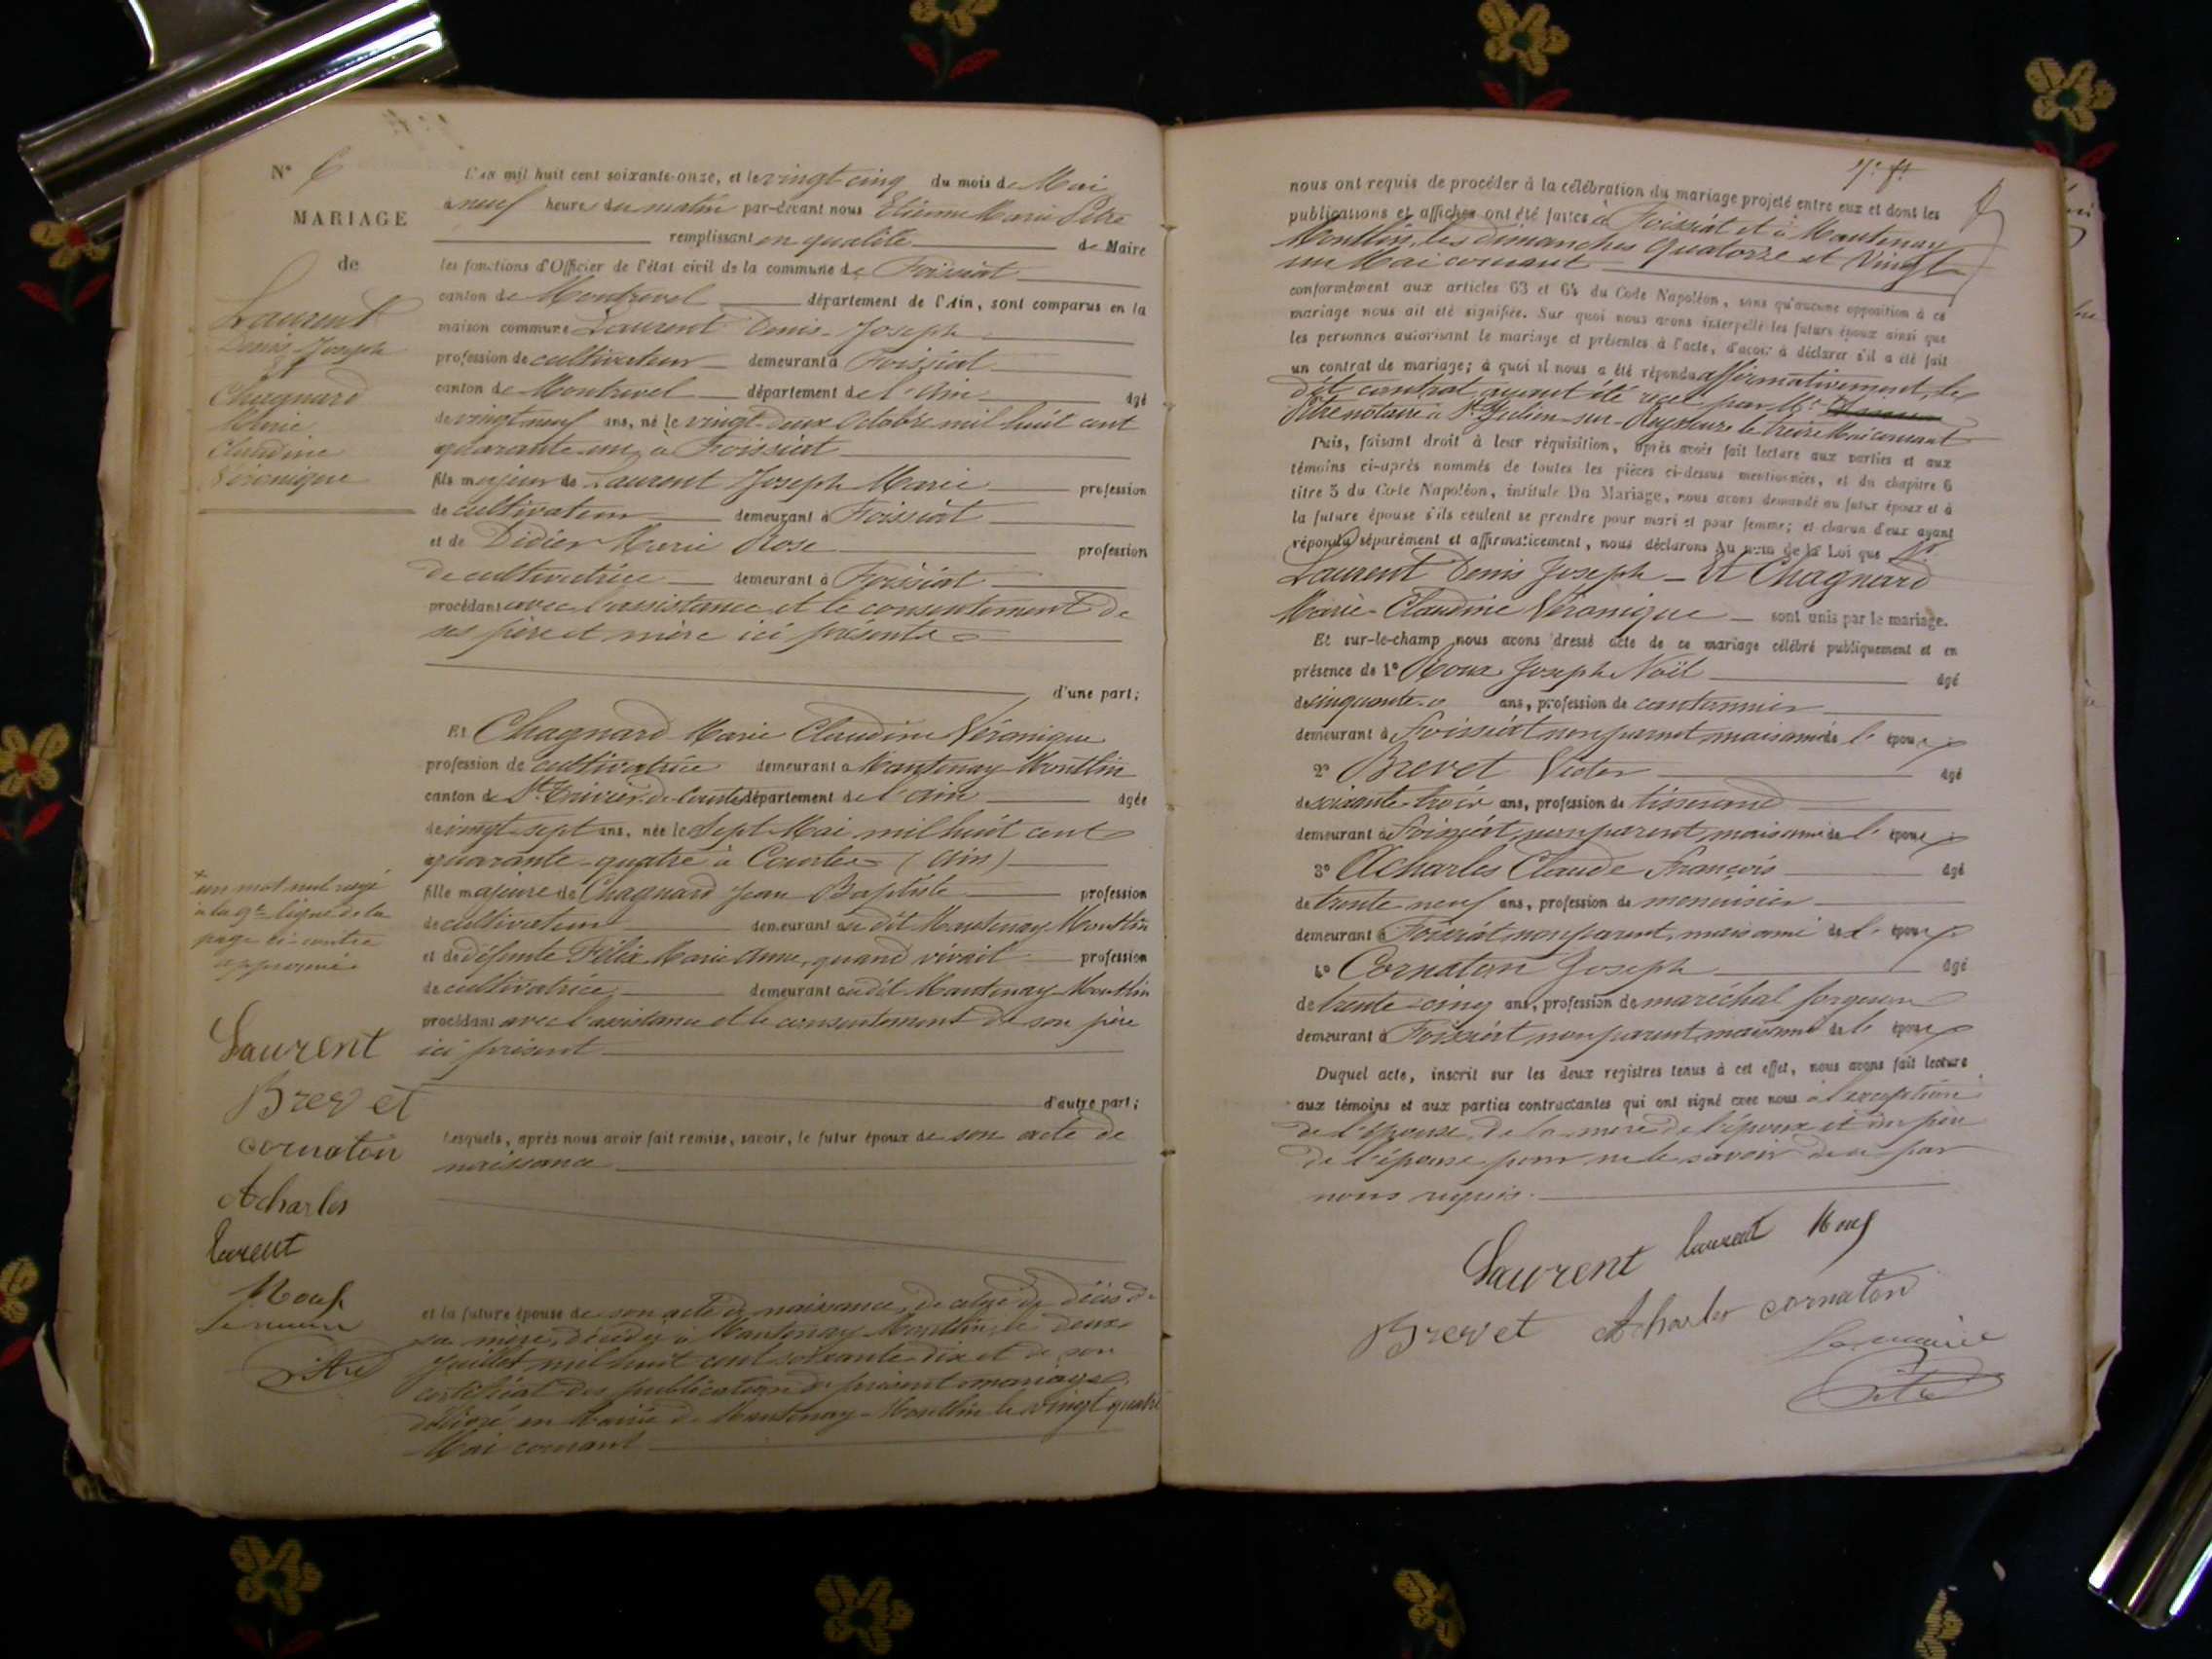 N° 6
MARIAGE
de
Laurent
Denis-Joseph
et
Chagnard
Marie
Claudine
Véronique
L'an mil huit cent soixante-onze, et le vingt-cinq du mois de Mai
à neuf heures du matin par-devant nous Etienne Marie Pitre
remplissant en qualité de Maire
les fonctions d'Officier de l'état civil de la commune de Foissiat
canton de Montrevel département de l'Ain, sont comparus en la
maison commune Laurent Denis-Joseph
profession de cultivateur demeurant à Foissiat
canton de Montrevel département de l'Ain âgé
de vingt neuf ans, né le vingt-deux Octobre mil huit cent
quarante-un à Foissiat
fils majeur de Laurent Joseph Marie profession
de cultivateur demeurant à Foissiat
et de Didier Marie Rose profession
de cultivatrice demeurant à Foissiat
procédant avec l'assistance et le consentement de
ses père et mère ici présents
d'une part;
Et Chagnard Marie Claudine Véronique
profession de cultivatrice demeurant à Mantenay-Montlin
canton de St Trivier de Courtes département de l'Ain âgée
de vingt-sept ans, née le Sept Mai mil huit cent
quarante-quatre à Courtes (Ain)
fille majeure de Chagnard Jean Baptiste profession
de cultivateur demeurant au dit Mantenay Montlin
et de défunte Félix Marie Anne, quand vivait profession
de cultivatrice demeurant au dit Mantenay-Montlin
procédant avec l'assistance et le consentement de son père
ici présent
d'autre part;
Lesquels, après nous avoir fait remise, savoir, le futur époux de son acte de
naissance
et la future épouse de son acte de naissance, de celui de décès de
sa mère, décédée à Mantenay-Montlin, le deux
Juillet mil huit cent soixante-dix et de son
certificat des publications du présent mariage,
délivré en Mairie de Mantenay-Montlin le vingt quatre
Mai courant
+ un mot nul rayé
à la 9e ligne de la
page ci-contre
approuvé
Laurent
Brevet
cornaton
Acharles
laurent
Roux
Le maire
Pitre
nous ont requis de procéder à la célébration du mariage projeté entre eux et dont les
publications et affiches ont été faites à Foissiat et à Mantenay
Montlin, les dimanches quatorze et vingt
un Mai courant
conformément aux articles 63 et 64 du Code Napoléon, sans qu'aucune opposition à ce
mariage nous ait été signifiée. Sur quoi nous avons interpellé les futurs époux ainsi que
les personnes autorisant le mariage et présentes à l'acte, d'avoir à déclarer s'il a été fait
un contrat de mariage; à quoi il nous a été répondu affirmativement, le
dit contrat ayant été reçu par Me
Pitre notaire à St Julien-sur-Reyssouze le treize Mai courant
Puis, faisant droit à leur réquisition, après avoir fait lecture aux parties et aux
témoins ci-après nommés de toutes les pièces ci-dessus mentionnées, et du chapitre 6
titre 5 du Code Napoléon, intitulé Du Mariage, nous avons demandé au futur époux et à
la future épouse s'ils veulent se prendre pour mari et pour femme; et chacun d'eux ayant
répondu séparément et affirmativement, nous déclarons Au nom de la Loi que
Laurent Denis Joseph - Et Chagnard
Marie-Claudine Véronique sont unis par le mariage.
Et sur-le-champ nous avons dressé acte de ce mariage célébré publiquement et en
présence de 1° Roux Joseph Noël âgé
de cinquante ans, profession de cantonnier
demeurant à Foissiat non parent mais ami de l' époux
2° Brevet Victor âgé
de soixante-trois ans, profession de tisserand
demeurant à Foissiat, non parent, mais ami de l' époux
3° Acharles Claude François âgé
de trente neuf ans, profession de menuisier
demeurant à Foissiat non parent, mais ami de l' époux
4° Cornaton Joseph âgé
de trente-cinq ans, profession de maréchal forgeron
demeurant à Foissiat non parent, mais ami de l' époux
Duquel acte, inscrit sur les deux registres tenus à cet effet, nous avons fait lecture
aux témoins et aux parties contractantes qui ont signé avec nous à l'exception
de l'épouse, de la mère de l'époux et du père
de l'épouse pour ne le savoir de ce par
nous requis.
Laurent laurent Roux
Brevet Acharles cornaton
Le maire
Pitre